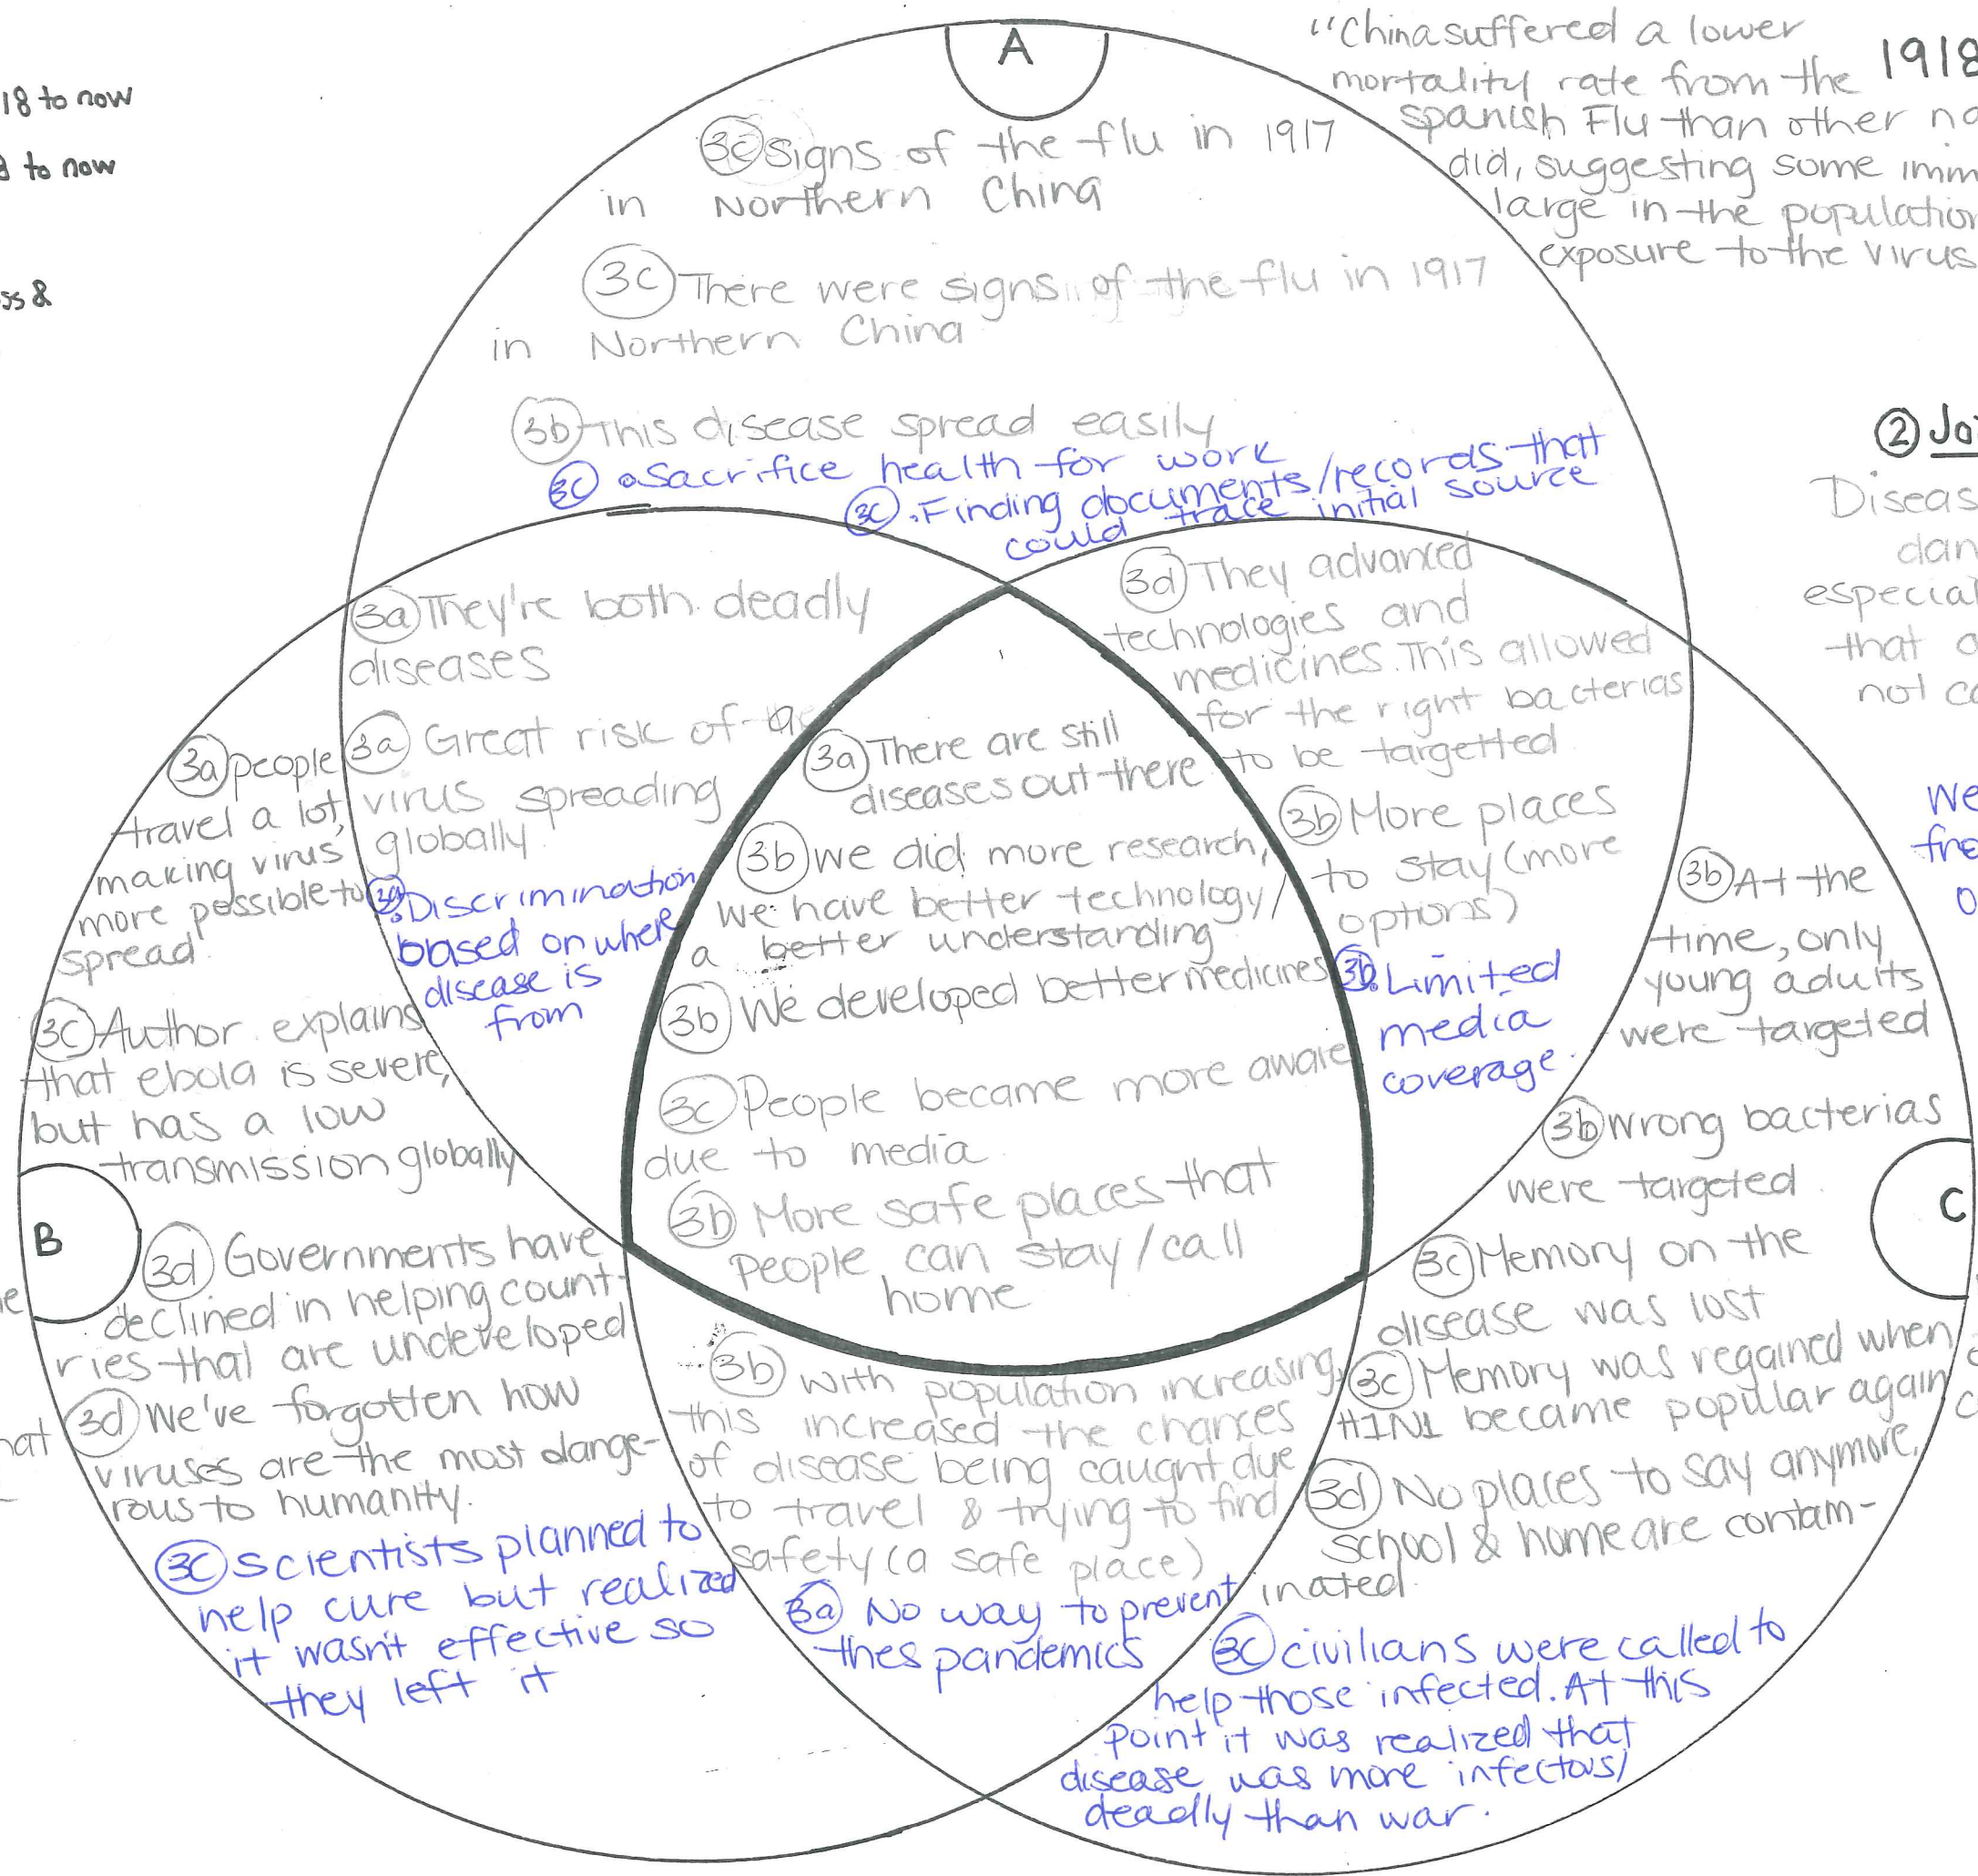 18 to now
to now
ss &
A
"China suffered a lower
mortality rate from the
spanish Flu than other na
did, suggesting some imm
large in the population
exposure to the virus
1918
3c Signs of the flu in 1917
in Northern China
3c There were signs of the flu in 1917
in Northern China
3b This disease spread easily
3c Sacrifice health for work
3c Finding documents/records that
could trace initial source
2 Jo
Diseas
dan
especial
that
not
We
fro
o
3a They're both deadly
diseases
3a Great risk of a
virus spreading
globally
3a Discrimination
based on where
disease is
from
3d They advanced
technologies and
medicines. This allowed
for the right bacterias
to be targetted
3b More places
to stay (more
options)
3b Limited
media
coverage.
3a There are still
diseases out there
3b we did more research,
we have better technology/
a better understanding
3b We developed better medicines
3c People became more aware
due to media
3b More safe places that
people can stay/call
home
3a people
travel a lot,
making virus
more possible to
spread
3c Author explains
that ebola is severe,
but has a low
transmission globally
B
3d Governments have
declined in helping count-
ries that are undeveloped
3d We've forgotten how
viruses are the most dange-
rous to humanity.
3c Scientists planned to
help cure but realized
it wasn't effective so
they left it
3b with population increasing,
this increased the chances
of disease being caught due
to travel & trying to find
safety (a safe place)
3a No way to prevent
thes pandemics
3b At the
time, only
young adults
were targeted
3b Wrong bacterias
were targeted
C
3c Memory on the
disease was lost
3c Memory was regained when
H1N1 became popular again
3d No places to say anymore,
school & home are contam-
inated.
3c civilians were called to
help those infected. At this
point it was realized that
disease was more infectous/
deadly than war.
e
hat